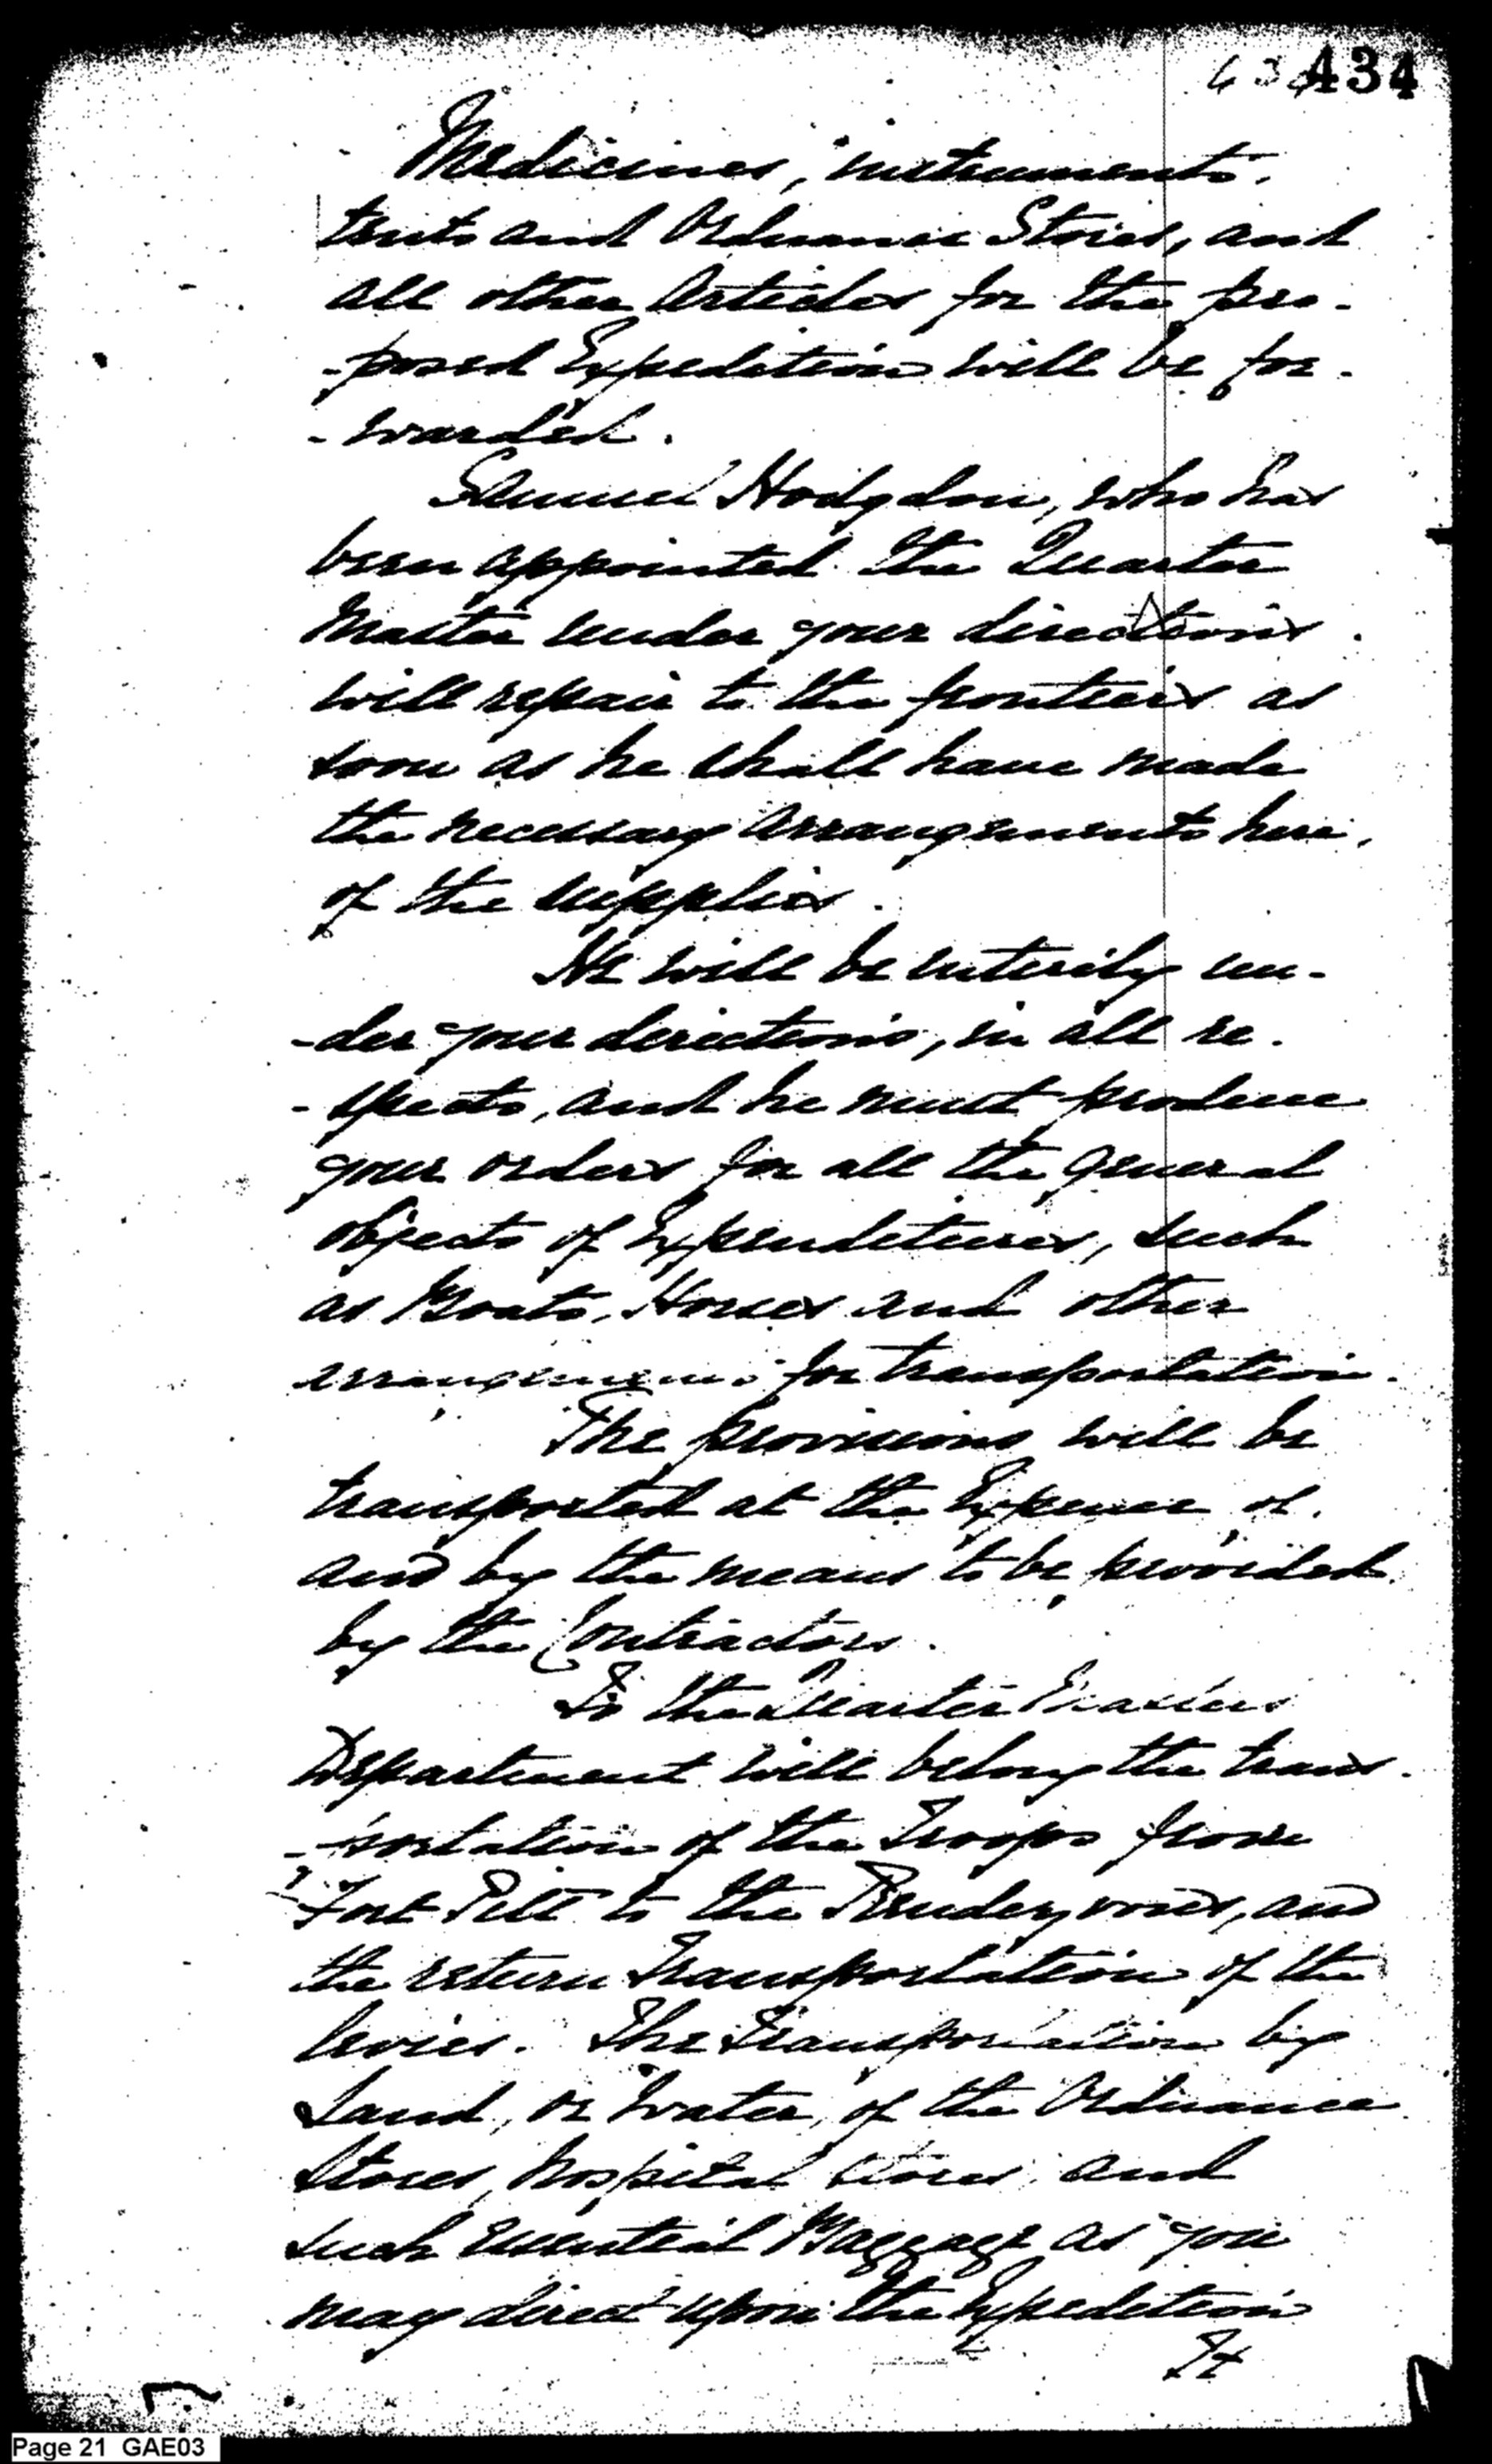 434 434
Medicines, instruments,
tents and Ordnance Stores, and
all other Articles for the pro-
-posed Expedition will be for-
-warded.
Samuel Hodgdon, who has
been appointed the Quarter
Master under your directions
will repair to the frontiers as
soon as he shall have made
the necessary Arrangements here,
of the supplies.
He will be enterily un-
-der your directions, in all re-
-spects, and he must produce
your orders for all the general
objects of Expenditures, such
as Boats, Horses and other
arrangements for transportation.
The provisions will be
transported at the Expence of,
and by the means to be provided
by the Contractors.
To the Quarter Masters
Department will belong the trans-
-portation of the Troops from
Fort Pitt to the Rendezvous, and
the return Transportation of the
levies. The Transportation by
Land, or Water, of the Ordnance
Stores, hospital stores, and
such essential Baggage as you
may direct upon the Expedition
It
Page 21 GAE03